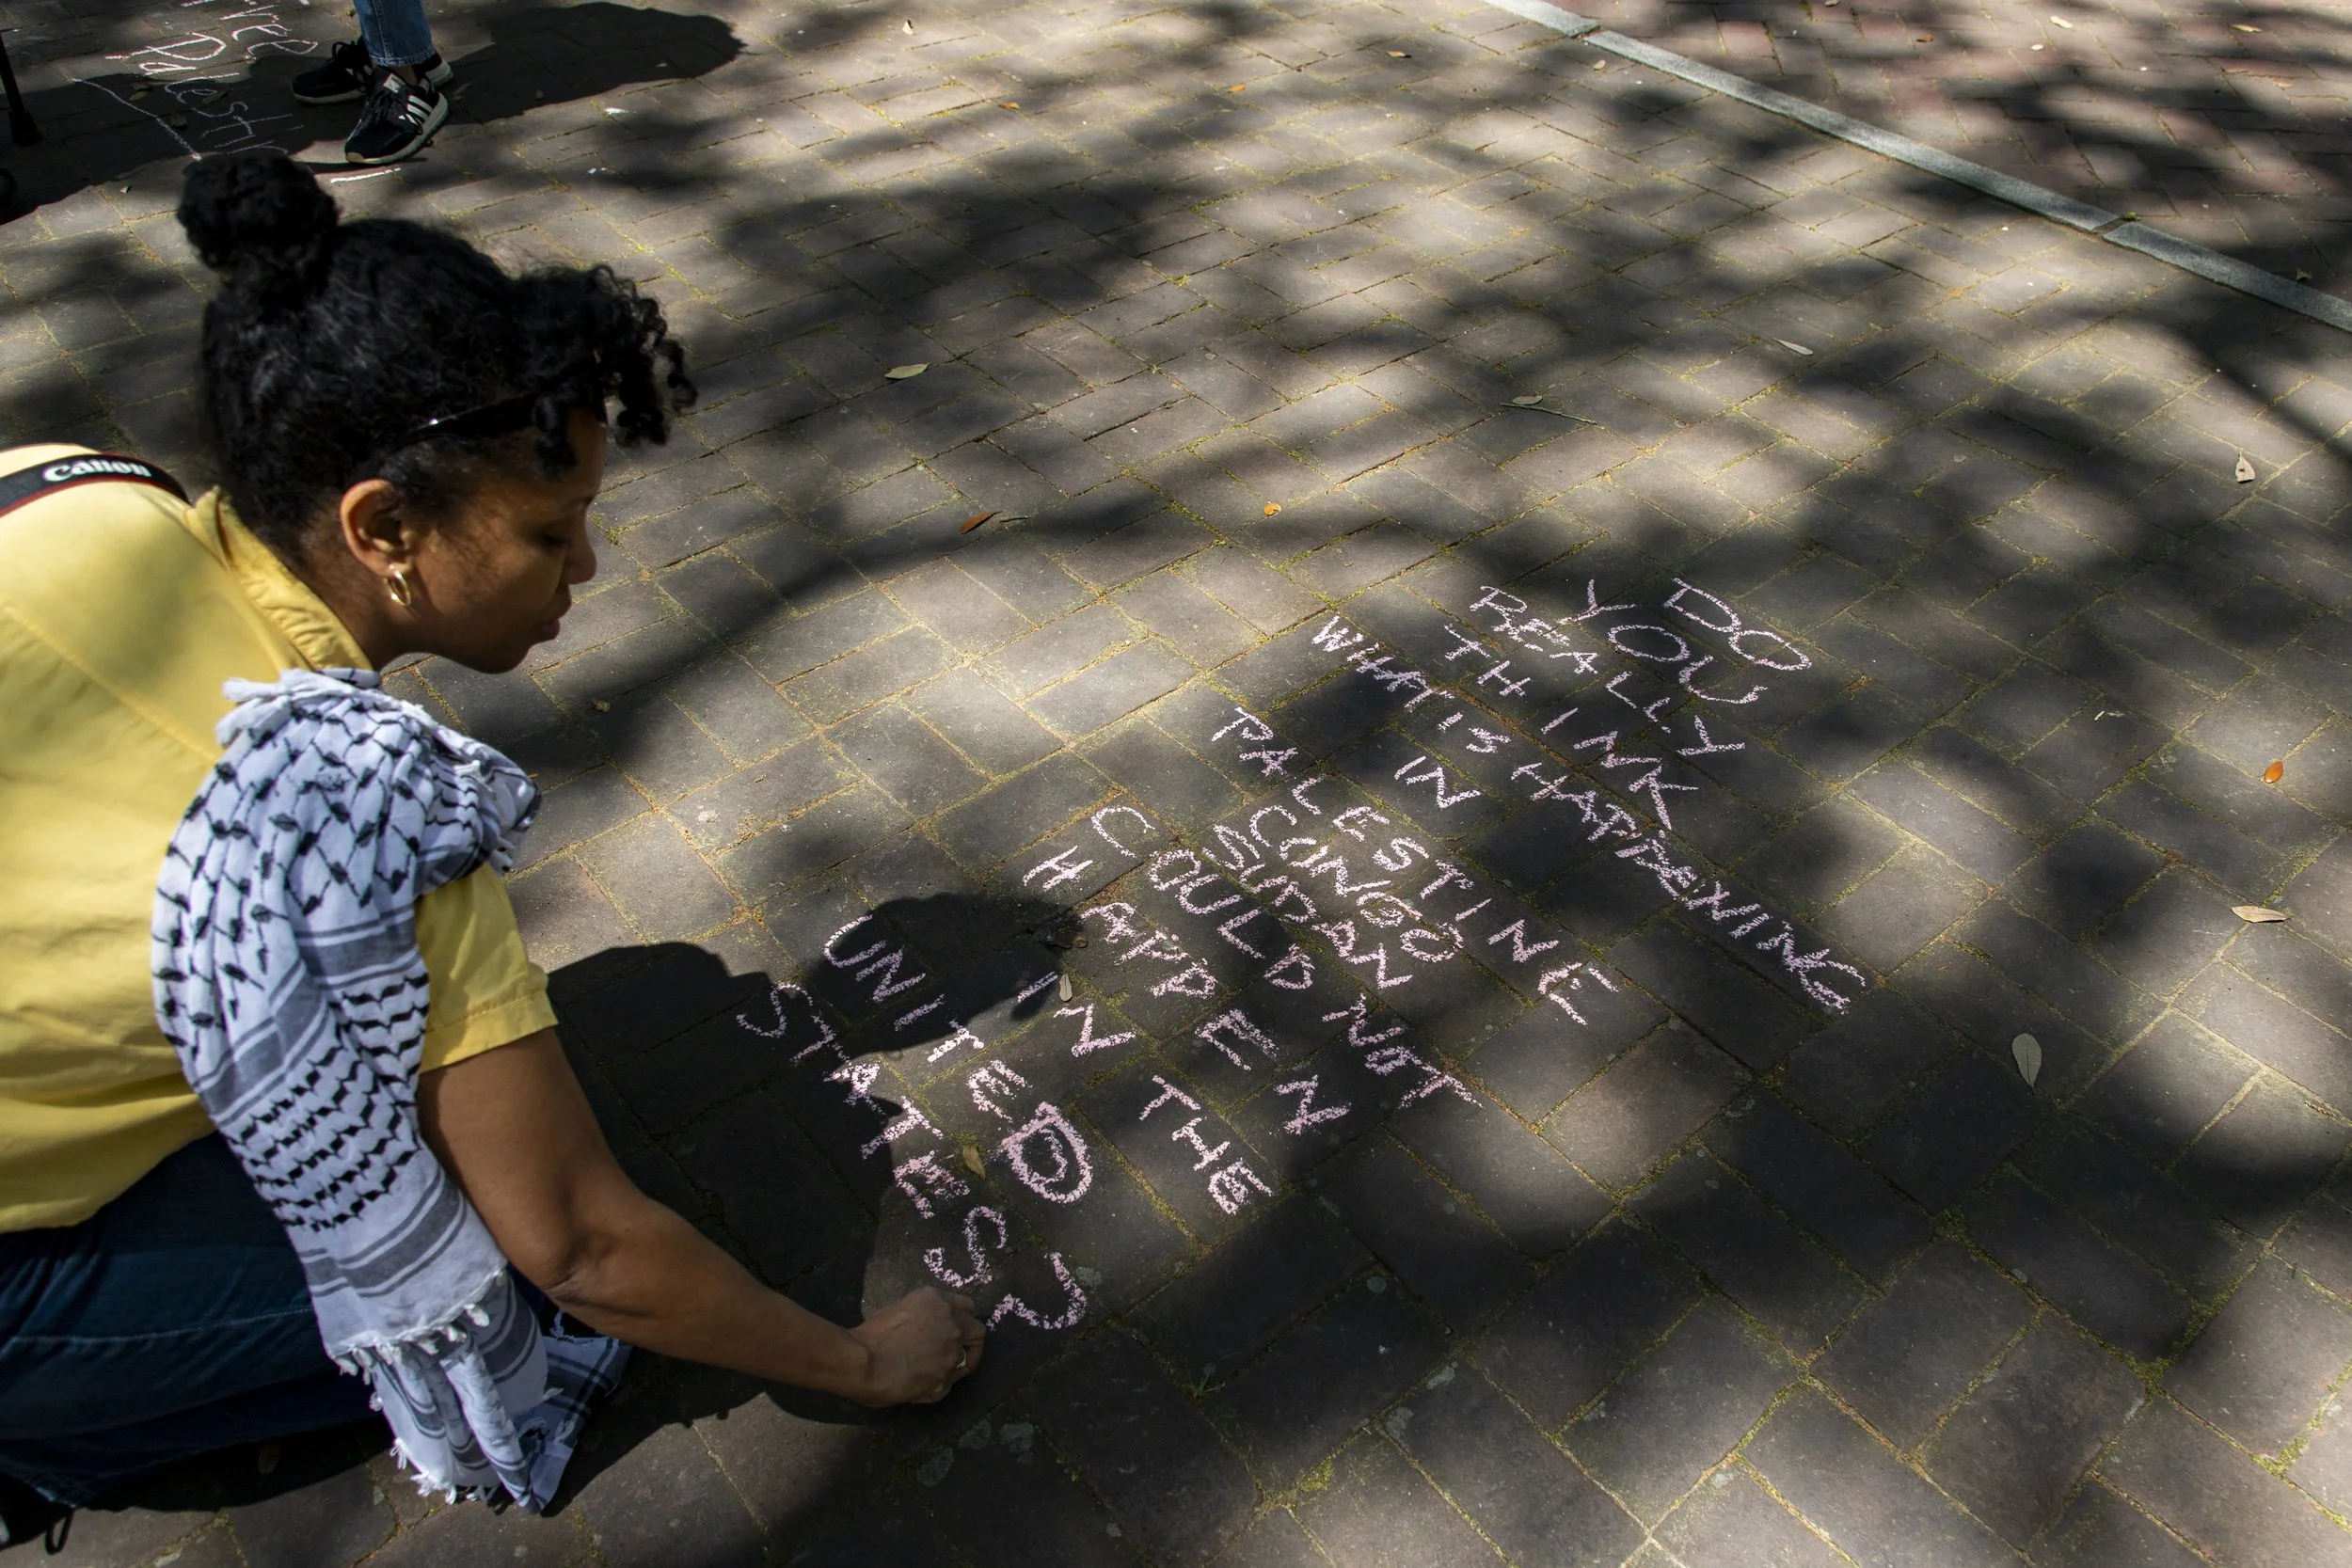 Free
Palestine
Canon
DO
YOU
REALLY
THINK
WHAT IS HAPPENING
IN
PALESTINE
CONGO
SUDAN
COULD NOT
HAPPEN
IN THE
UNITED
STATES?